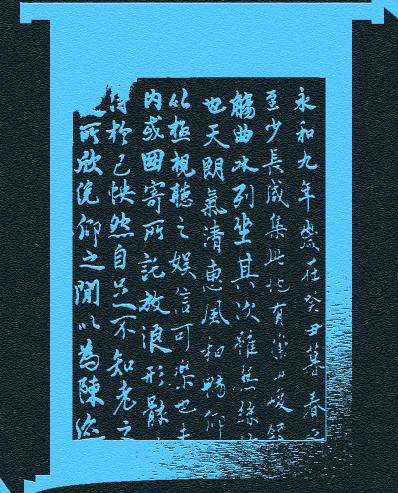 永和九年歲在癸丑暮春
至少長咸集此地有崇山峻領
觴曲水列坐其次雖無絲
也天朗氣清惠風和暢仰
以極視聽之娛信可樂也夫
内或因寄所託放浪形骸
得於己快然自足不知老之
所欣俛仰之閒以為陳迹